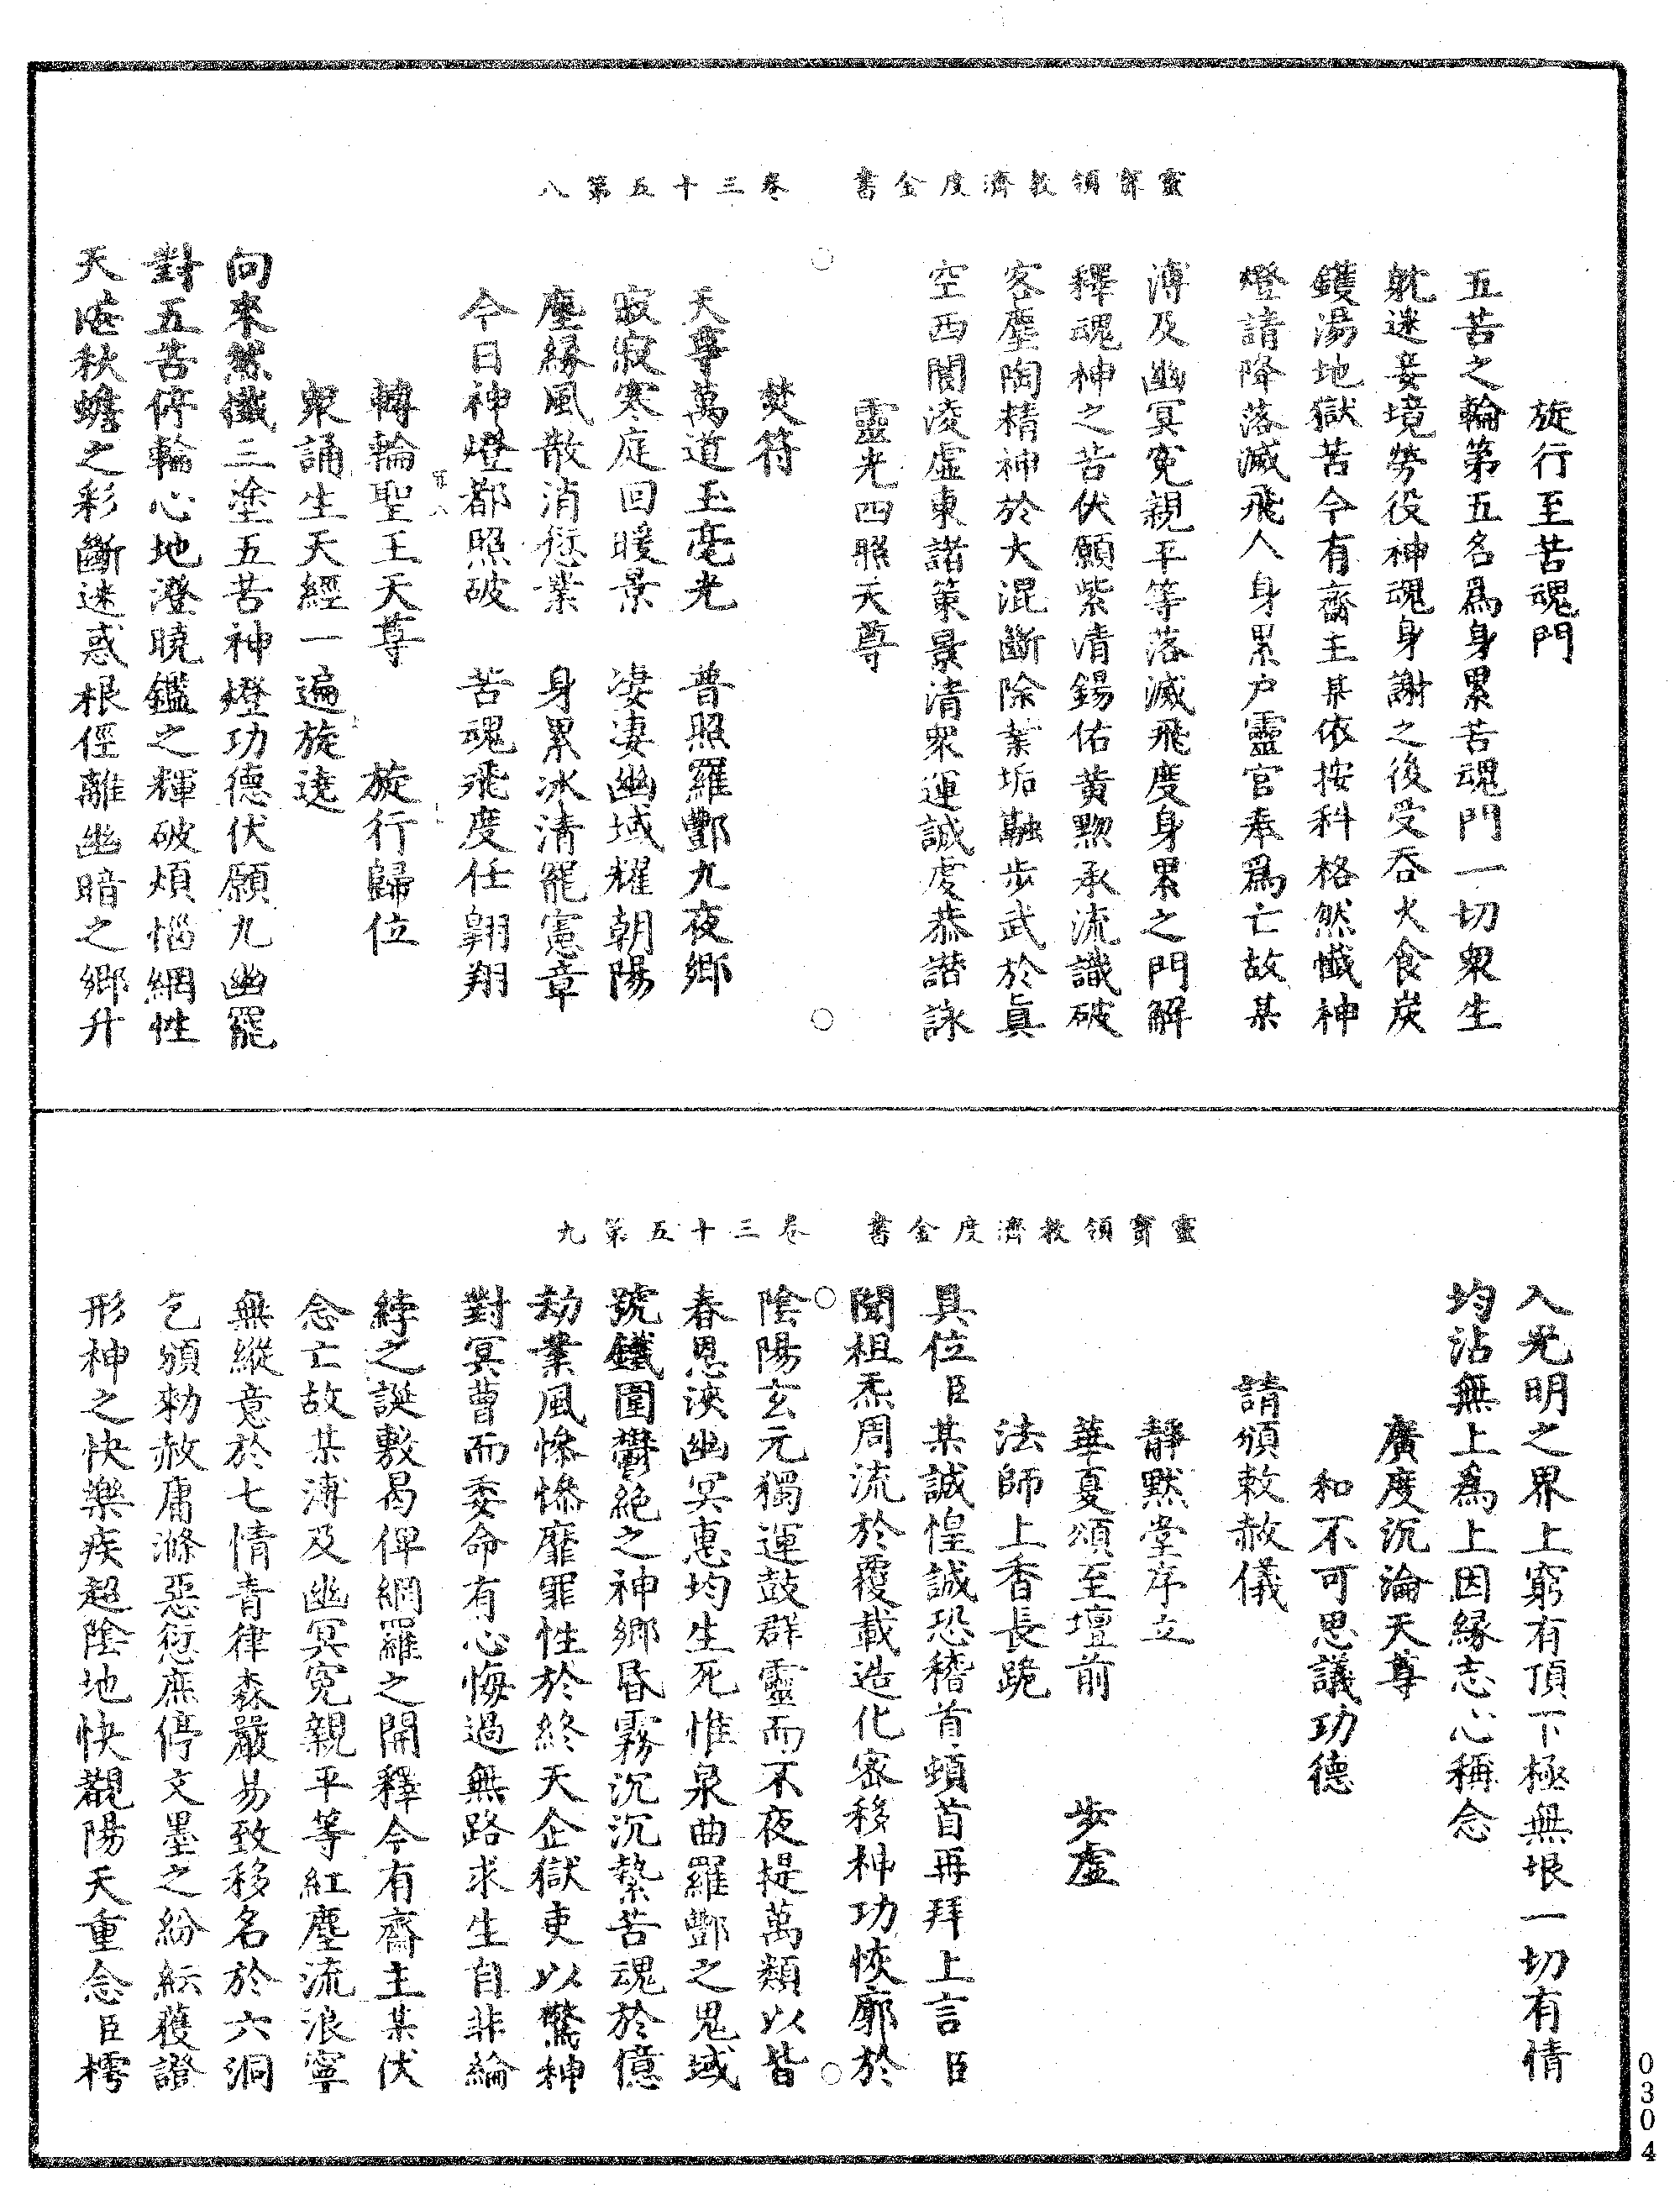 靈寶領教濟度金書　卷三十五第八
旋行至苦魂門
五苦之輪第五名爲身累苦魂門一切衆生
躭迷妄境勞役神魂身謝之後受吞火食炭
鑊湯地獄苦今有齋主某依按科格然懺神
燈請降落滅飛人身累户靈官奉爲亡故某
溥及幽冥寃親平等落滅飛度身累之門解
釋魂神之苦伏願紫清錫佑黄㸃承流識破
客塵陶精神於大混斷除業垢融步武於眞
空西闓淩虛東諸策景清衆運誠虔恭諧詠
靈光四照天尊
焚符
天尊萬道玉毫光　普照羅酆九夜鄉
寂寂寒庭回暖景　凄凄幽域耀朝陽
塵緣風散消愆業　身累冰清罷憲章
今日神燈都照破　苦魂飛度任翱翔
轉輪聖王天尊　旋行歸位
衆誦生天經一遍旋遶
向來然懺三塗五苦神燈功德伏願九幽罷
對五苦停輪心地澄曉鑑之輝破煩惱網性
天陡秋蟾之彩斷迷惑根俓離幽暗之鄉升
靈寶領教濟度金書　卷三十五第九
入光明之界上窮有頂下極無垠一切有情
均沾無上爲上因緣志心稱念
廣度沉淪天尊
和不可思議功德
請頒敕赦儀
靜默堂序立
華夏頌至壇前　步虛
法師上香長跪
具位臣某誠惶誠恐稽首頓首再拜上言臣
聞祖炁周流於覆載造化密移神功恢廓於
陰陽玄元獨運鼓群靈而不夜提萬類以皆
春恩浹幽冥惠均生死惟泉曲羅酆之鬼域
號鐵圍鬱絶之神鄉昏霧沉沉縶苦魂於億
劫業風慘慘靡罪性於終天企獄吏以驚神
對冥曹而委命有心悔過無路求生自非綸
綍之誕敷曷俾網羅之開釋今有齋主某伏
念亡故某溥及幽冥寃親平等紅塵流浪寧
無縱意於七情青律森嚴易致移名於六洞
乞頒勑赦庸滌惡愆庶停文墨之紛紜獲證
形神之快樂疾超陰地快觀陽天重念臣樗
0304